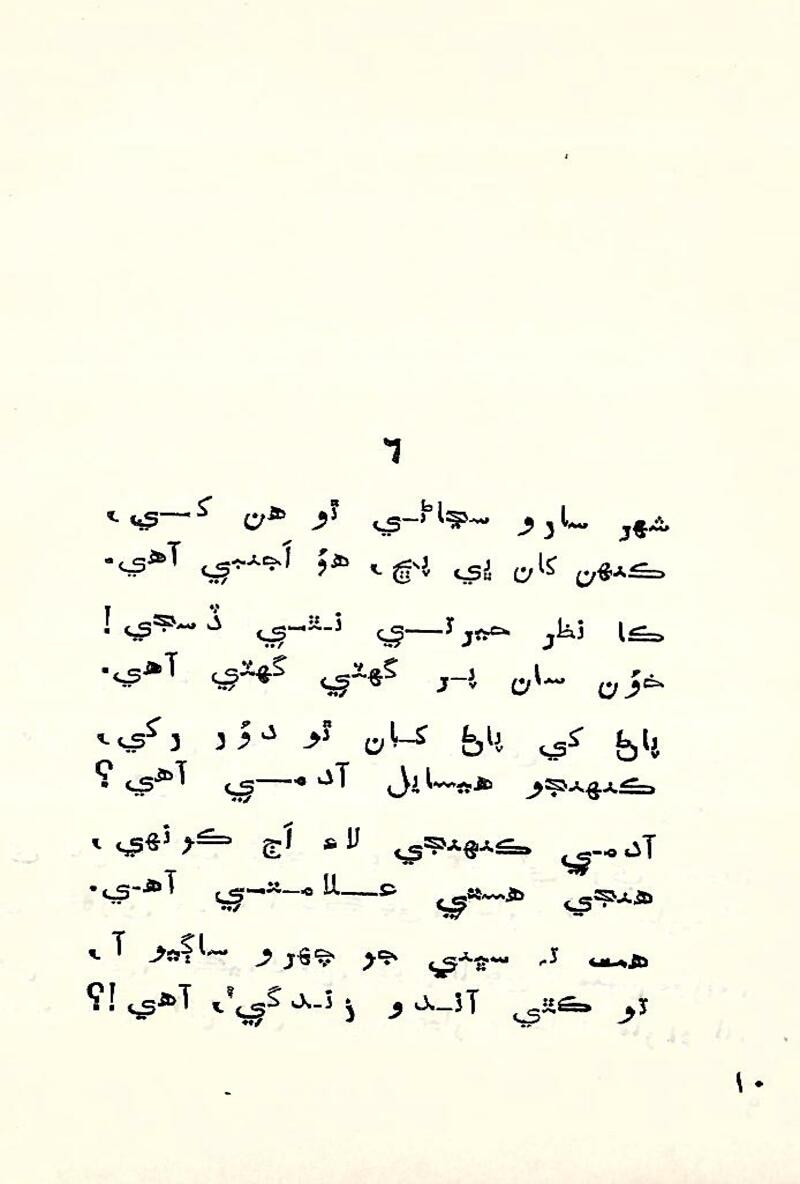 ٦
شهر سارو سڃاڻي ٿو هن کي،
ڪنهن کان ٻي پڇ، هوُ اَجنبي آهي.
ڪا نظر حيرتي نٿي ڏسجي!
خوُن سان پر گهٽي گهٽي آهي.
پاڻ کي پاڻ کان ٿو دوُر رکي،
ڪنهنجو هيسايل آدمي آهي؟
آدمي ڪنهنجي لاءِ اَڄ ڪونهي،
هنجي هستي علامتي آهي.
همت تہ سڀني جو چهرو ساڳيو آ،
تو ڪٿي آندو زندگي، آهي!؟
١٠